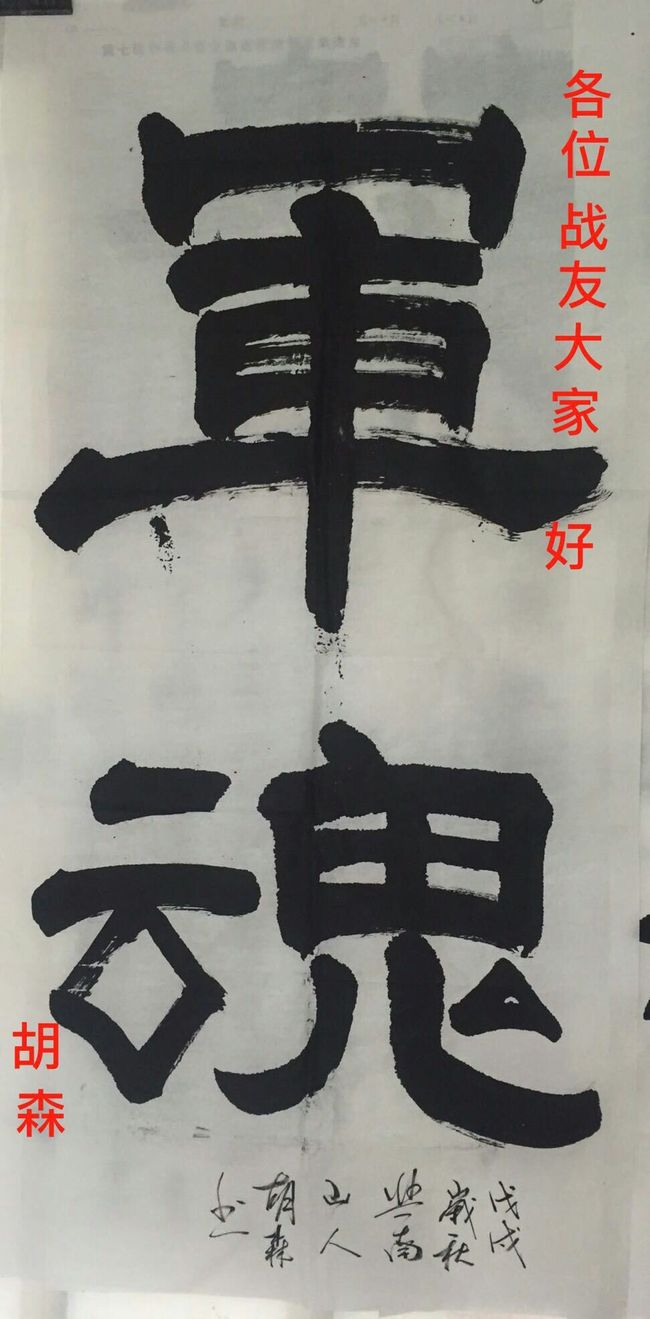 軍魂
各位战友大家好
胡森
戊戌
歲秋
楚南
山人
胡森
书